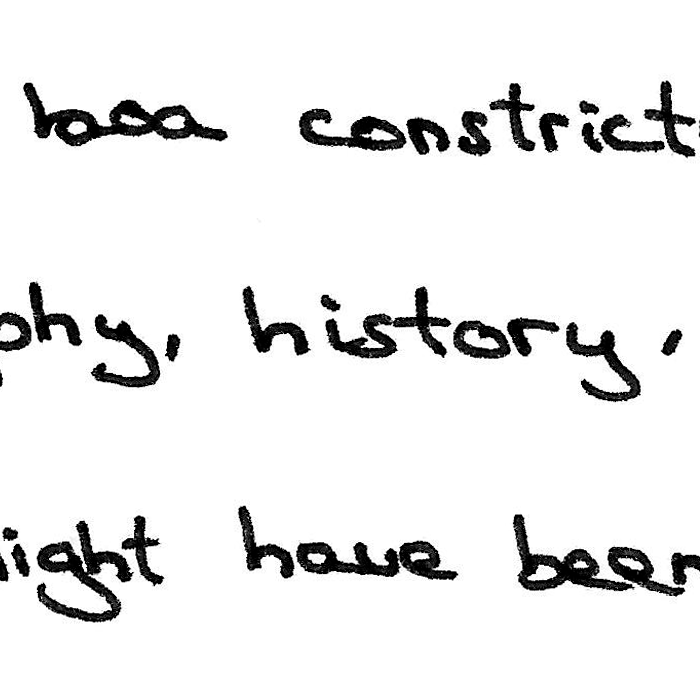 boa constrict
phy, history,
ight have been